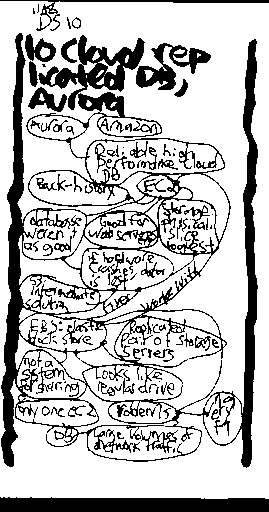 DS 10
10 Cloud rep
licated DB,
Aurora
Aurora
Amazon
Reliable high
performance cloud
DB
Back-history
EC2
database
weren't
as good
Good for
web servers
storage
physical
If hardware
crashes data
is lost
intermediate
solution
Fixes
works with
EBS: elastic
block store
Replicated
pair of storage
servers
not a
system
for sharing
Looks like
regular drive
only one EC2
Problems
not
very
FT
DB
Large volumes of
network traffic